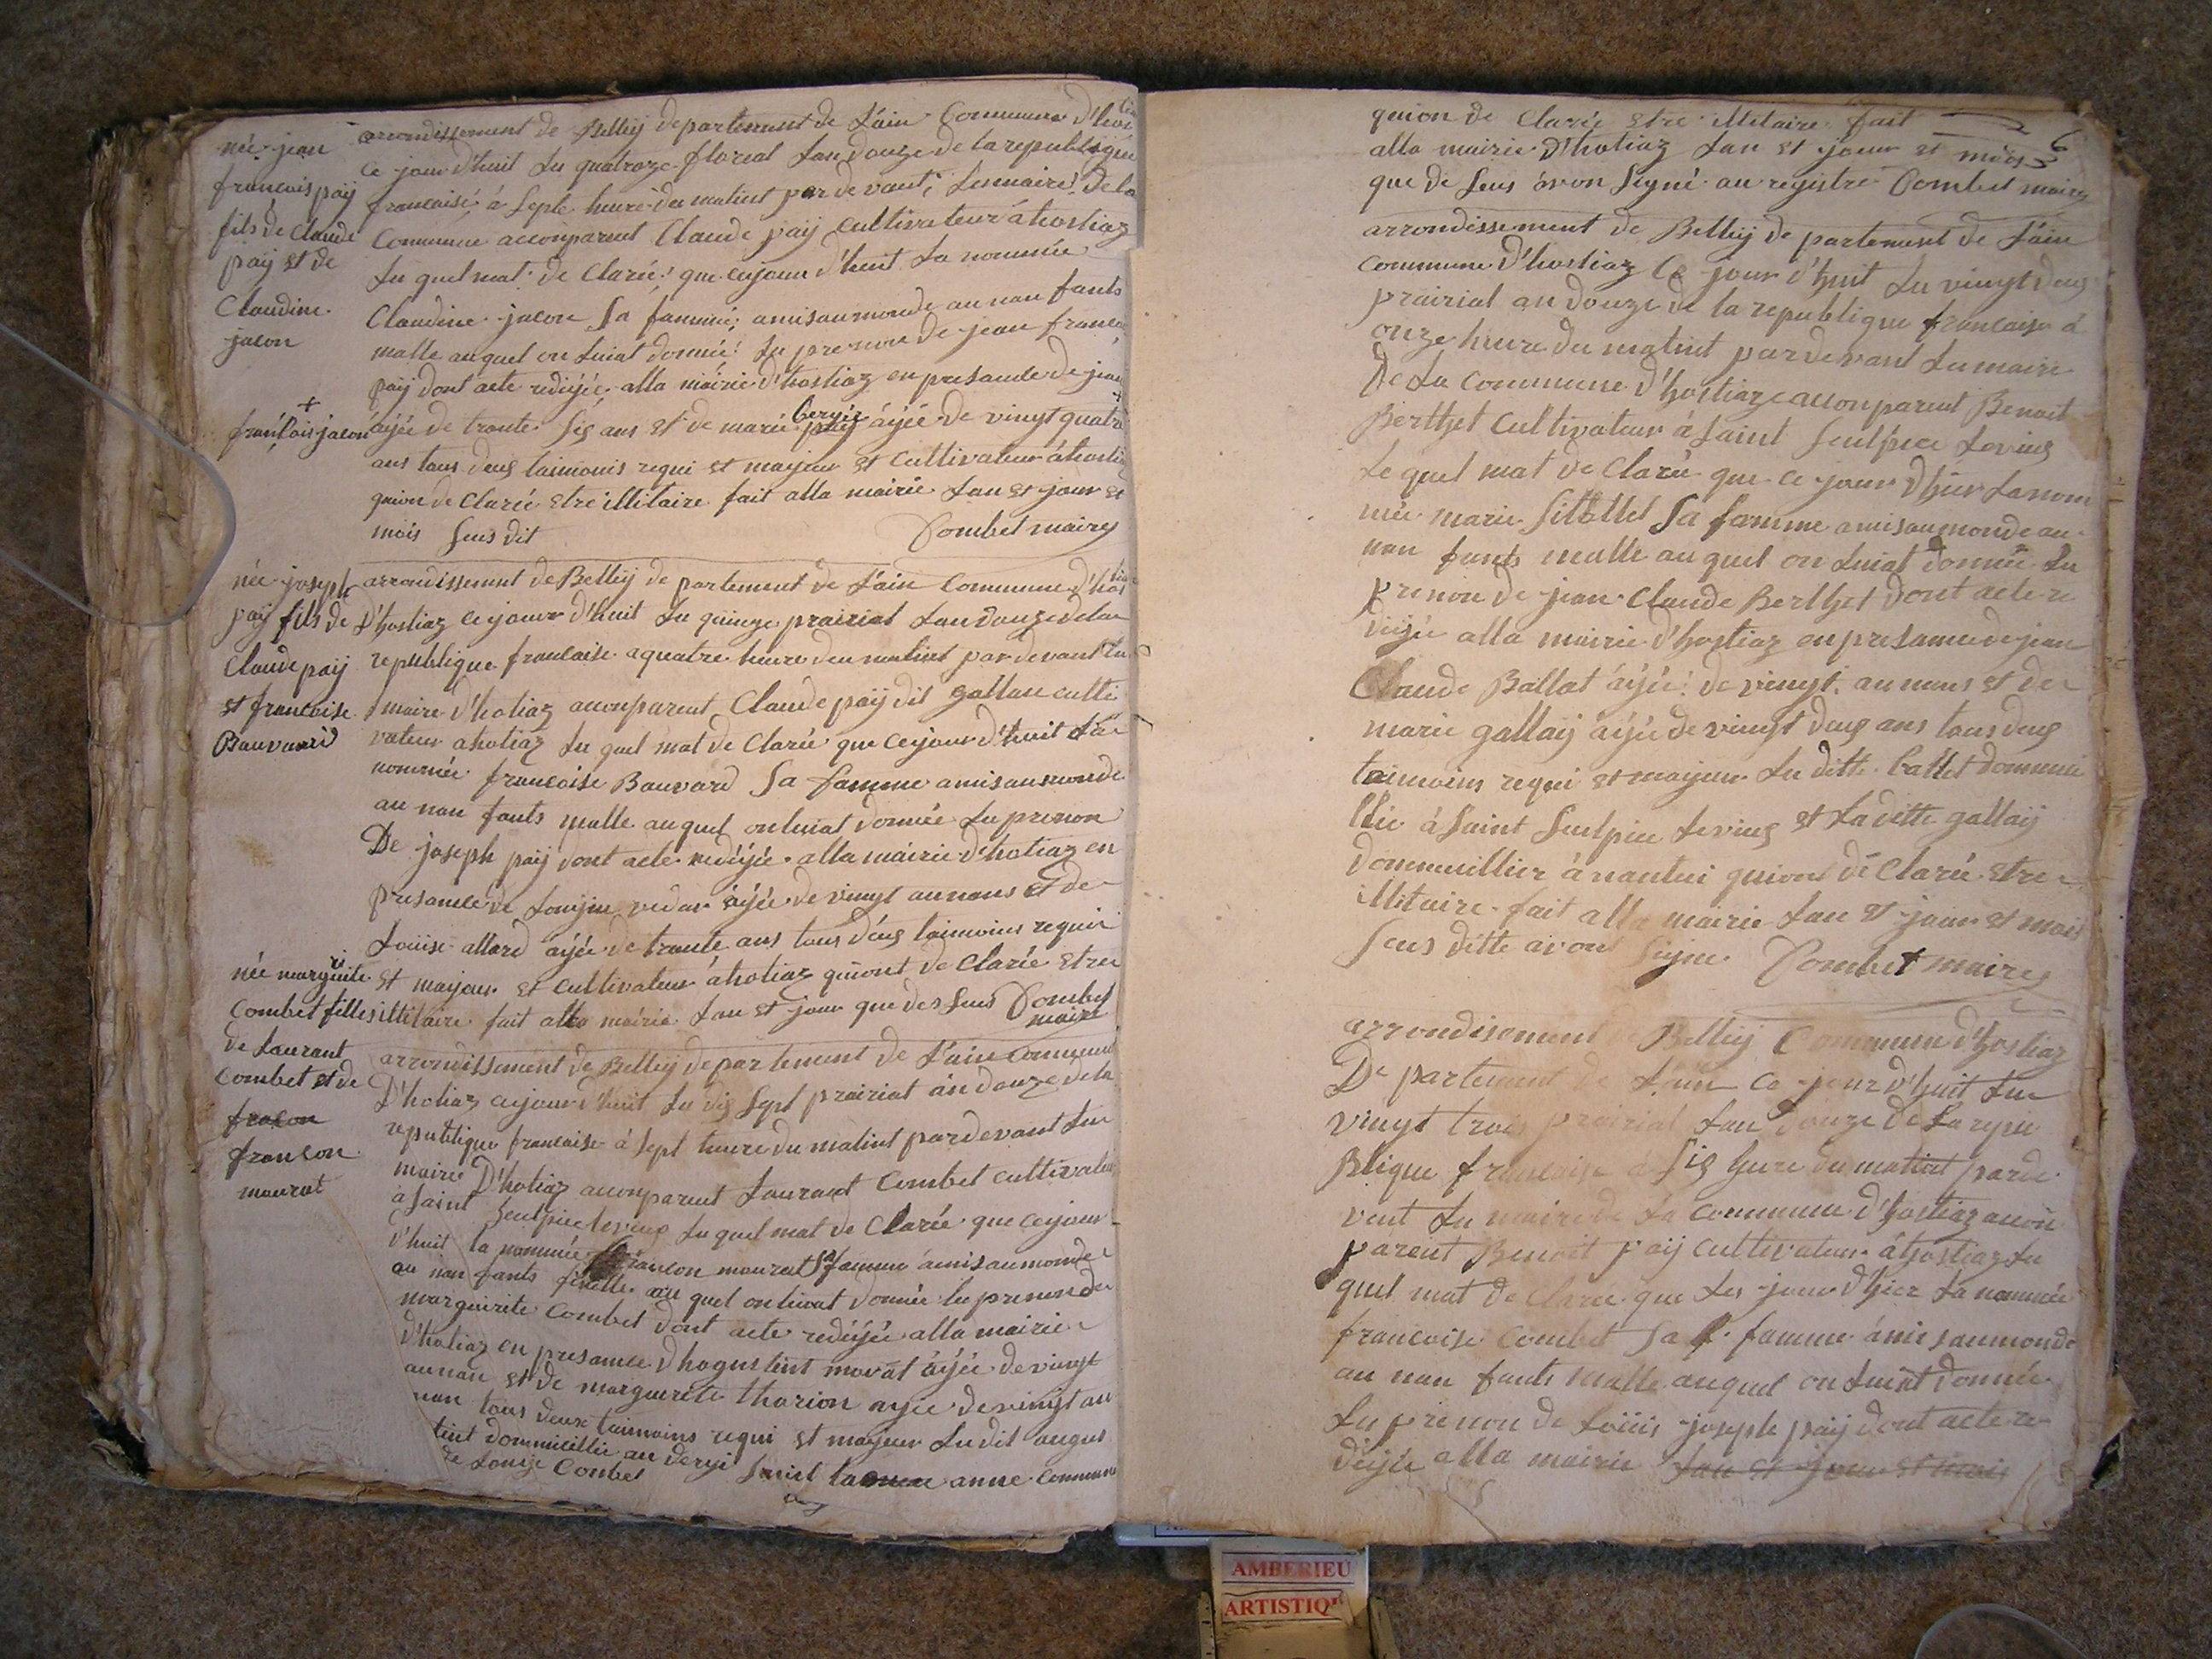 née jean
françois paÿ
fils de Claude
paÿ et de
Claudine
jacon
arrondissement de Belleÿ departement de L'ain Commune d'hos
Ce jour d'huit Lu quatroze floreal Lan douze de la republique
francaise à Septe heure du matint par devant Lemaire De la
Commune acconpareut Claude paÿ Cultivateur á hostiaz
Lu quel mat de Claréé que cejour d'huit La nommée
Claudine jacon Sa famme amisaumonde au nan fants
malle auquel on Luiat donnée Lu prenon de jean franco
paÿ dont acte redijée alla máirie d'hostiaz en presance de jean
+
françois jacon
áyée de trante Sis ans et de marie bergér áyée de vingt quatre
ans tous deus taimouis requi et majeur et Cultivateur áhosti
quion de Clarée etre illitaire fait alla mairie Lan et jour et
mois Seus dit Combet maires
née joseph
paÿ fils de
Claude paÿ
et francoise
Bauvard
arrondissement de Belleÿ de partement de L'ain Commune d'hos
D'hostiaz cejour d'huit Lu quinze prairial Lan douze de la
republique francaise a quatre heure deu matint par devant Lu
maire d'hotiaz acconpareut Claude paÿ dit gallau culti
vateur ahotiáz Lu quel mat de Clarée que cejour d'huit La
nommée francoise Bauvard Sa famme amisaumonde
au nan fants malle auquel onluiat donnée Lu prenon
De joseph paÿ dont acte redijée alla máirie d'hotiaz en
presance de Louijne vedar áyée de vingt aunans et de
Loüise allard áyée de trante ans tous deus taimoins requi
et majeur et Cultivateur áhotiaz quiont de Clarée etre
illitaire fait alla mairie Lan et jour que des seus Combet
maire
née marguirite
Combet filles
de Laurant
Combet et de
fracon
francon
maurat
arrondissement de Belleÿ de partement de L'ain Commune
D'hotiaz cejour d'huit Lu dis Sept prairiat an douze de la
republique francaise á Sept heure du matint pardevant Lu
maire D'hotiaz acconpareut Laurant Combet cultivateur
á Saint Seulpice levieux Lu quel mat de Clarée que cejour
d'huit la nommée francon maurat Sa famme ámisaumonde
au nan fants femelle au quel onluiat donnée lu prenon de
marguirite Combet dont acte redijée alla mairie
d'hotiaz en presance d'hogustint morat áyée de vingt
aunan et de marguerite tharion ayée de vingt au
nan tous deux taimoins requi et majeur Ludit augus
tint dommicillie au dergi Saint anne Commune
de Louije Combet
6
quion de Clarée etre illitaire fait
alla mairie D'hotiaz Lan et jour et mois
que de Seus ávon Signé au registre Combet maires
arrondissement de Belleÿ de partement de L'ain
Commune D'hostiaz Ce jour d'huit Lu vingt deus
prairial an douze de la republique francaise á
onze heure du matint pardevant Lu maire
De La Commune D'hostiaz acconparent Benoit
Berthet Cultivateur á Saint Seulpice Levieus
Le quel mat de Clarée que ce jour D'hier Lanom
mée marie Sa famme amisaumonde au
nan fants malle au quel on Luiat donnée Lu
prenon De jean Claude Berthet Dont acte re
dijée alla mairie d'hostiaz en presance de jean
Claude Ballat áyée de vingt aunans et de
marie gallaÿ áyée de vingt deus ans tous deus
taimoins requi et majeur Lu ditte ballet dommi
llié á Saint Seulpice Levieus et La ditte gallaÿ
dommuillier á nantui quiont de Clarée etre
illitaire fait alla mairie Lan et jour et mois
Seus ditte avont Signe Combet maires
arrondisement de Belleÿ Commune d'hostiaz
De partement de L'ain Ce jour d'huit Lu
vingt trois prairial Lan douze De La repu
Blique francaise á Sis heure du matint parde
vent Lu maire de La Commune d'hostiaz accon
párent Benoit paÿ Cultivateur áhostiaz Lu
quel mat de Clarée que Lu jour d'hier La nommée
francoise Combet Sa f. famme ámisaumonde
au nan fants malle auquel on Luiat donnée
Lu prenon de Loüis joseph paÿ dont acte re
dijée alla mairie Lan et jour et mois
AMBERIEU
ARTISTIQ